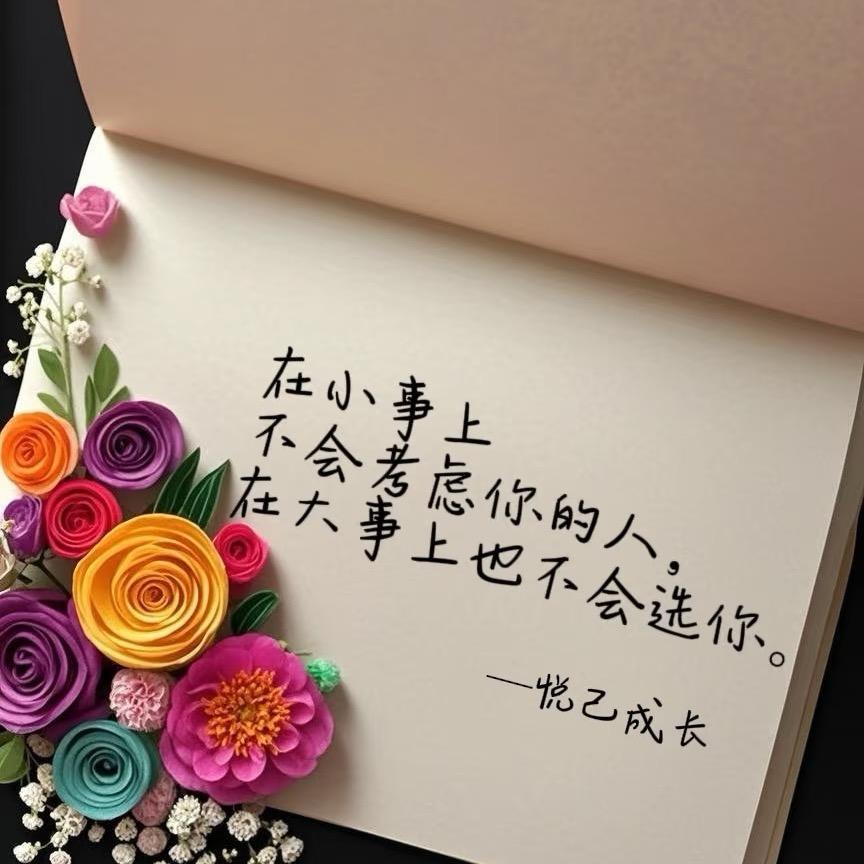 在小事上
不会考虑你的人，
在大事上也不会选你。
—悦己成长